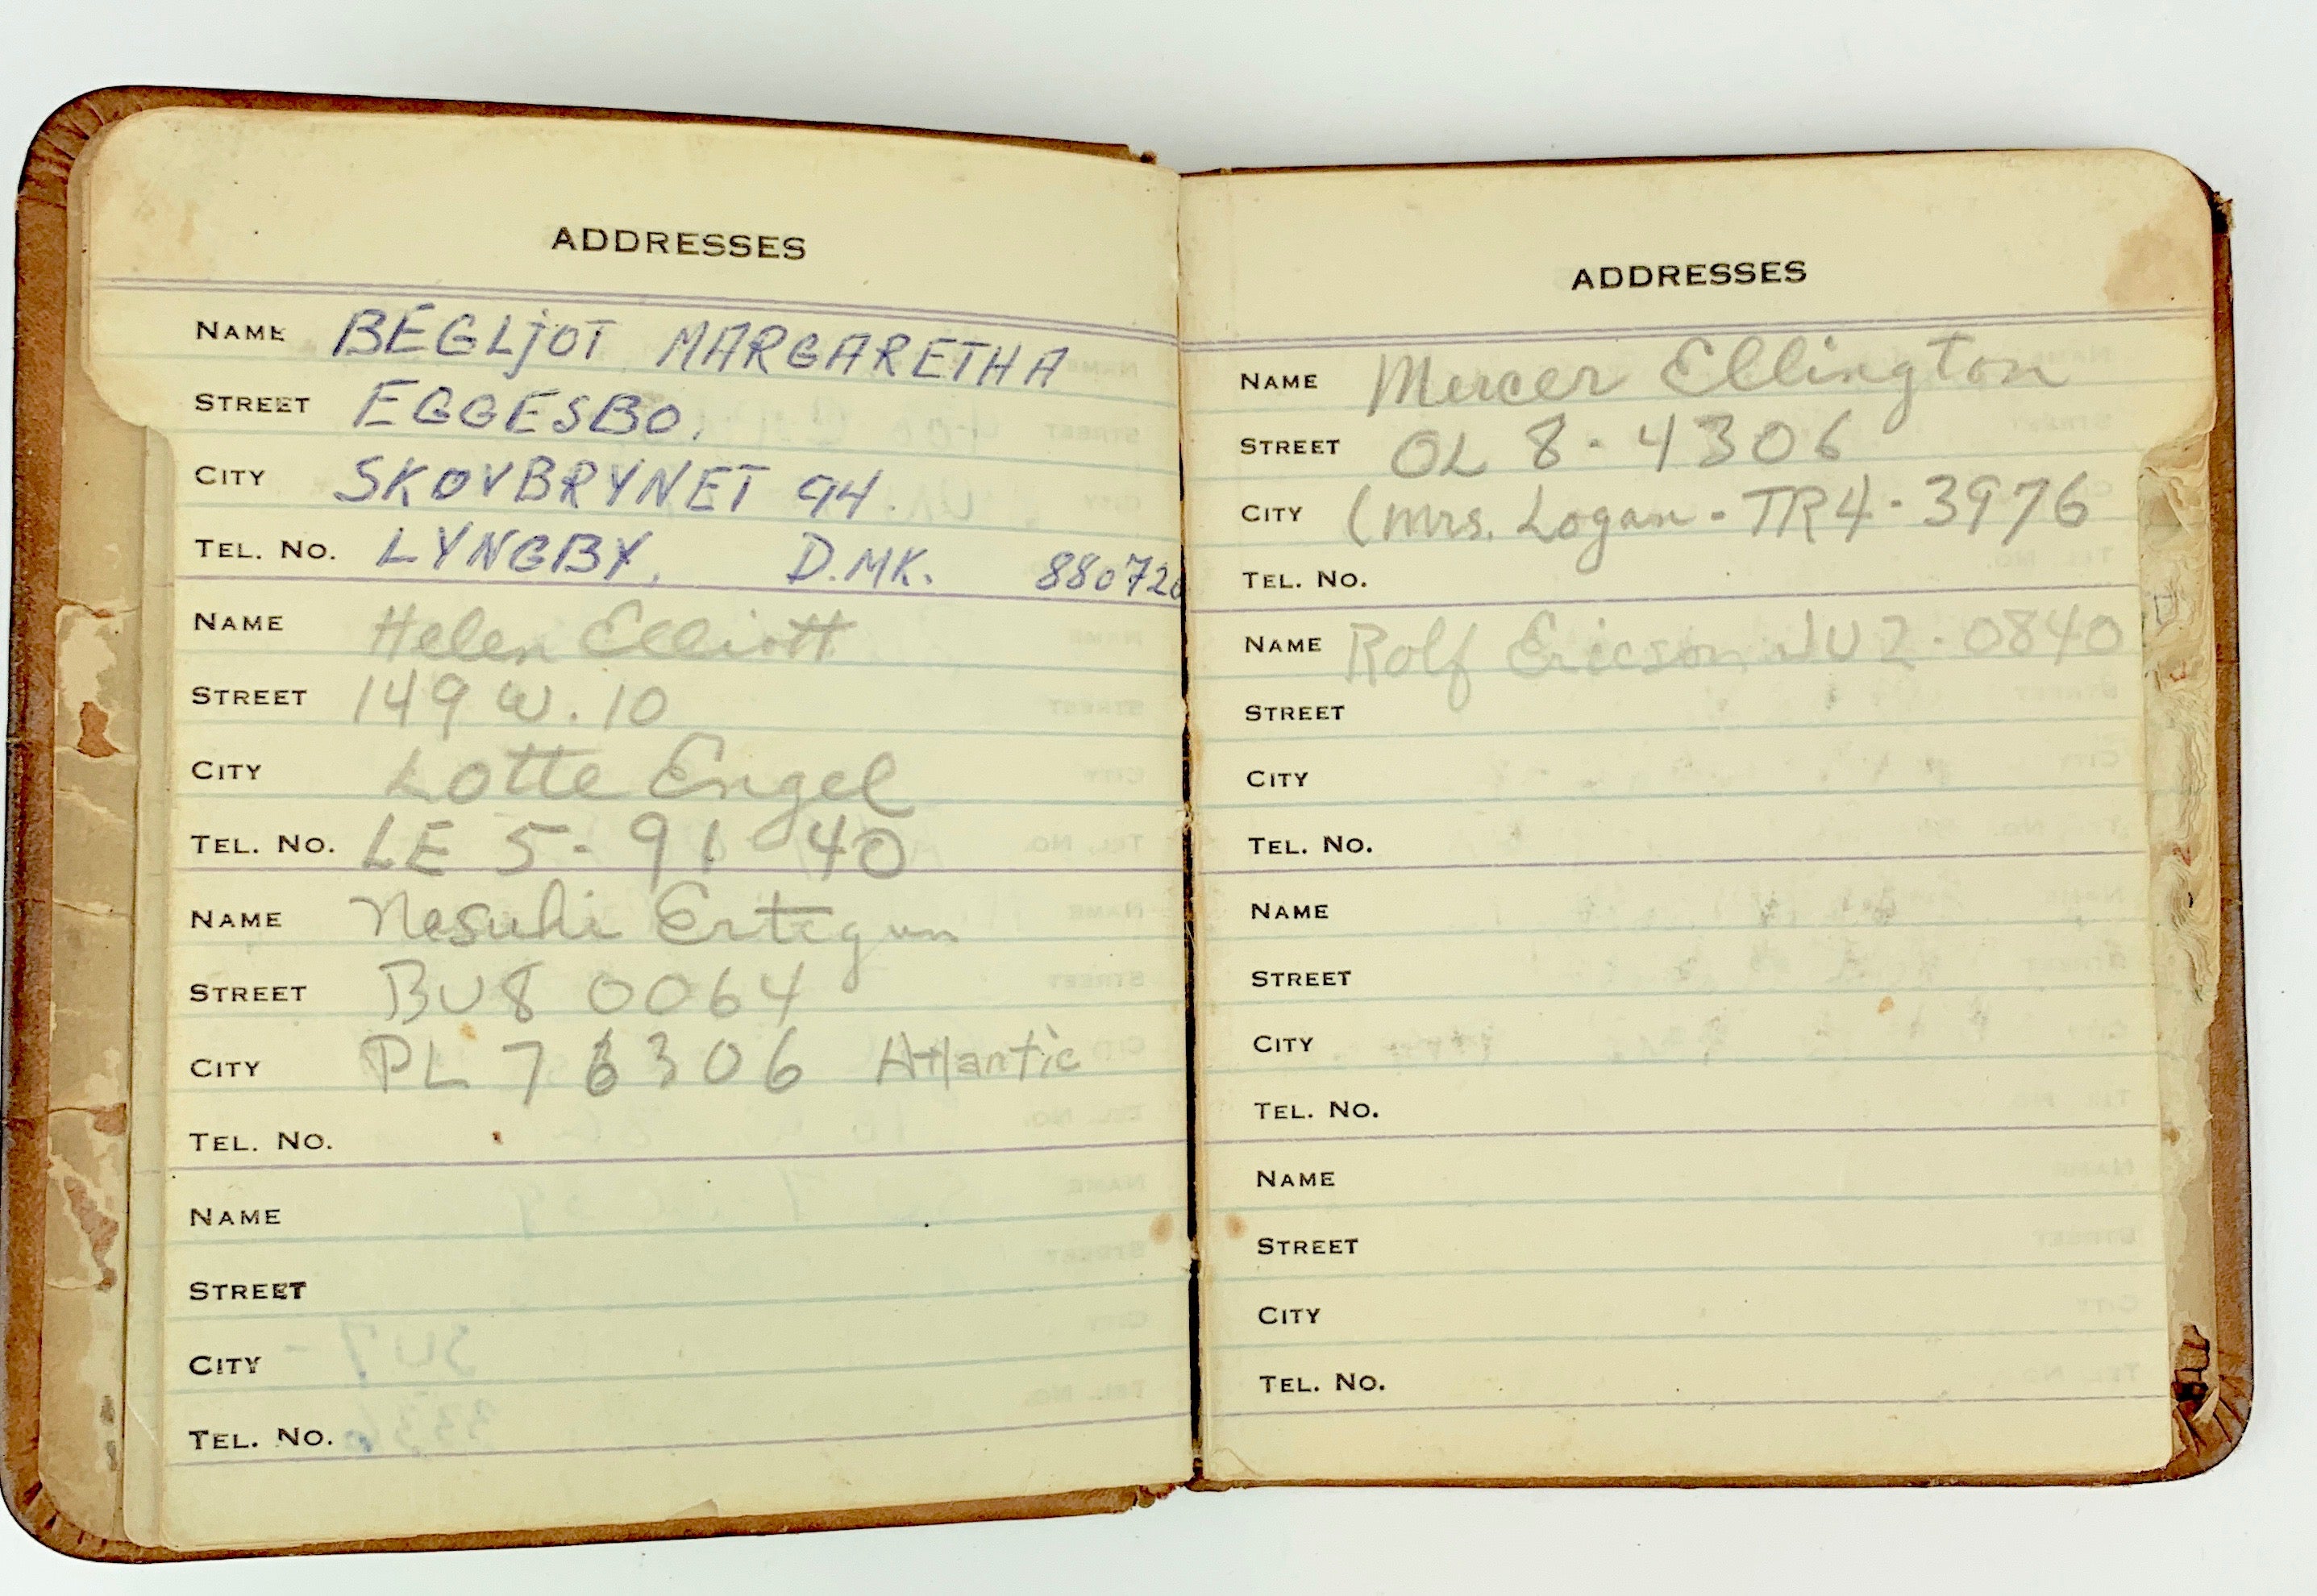 ADDRESSES
NAME BEGLJOT MARGARETHA
STREET EGGESBO.
CITY SKOVBRYNET 94.
TEL. NO. LYNGBY. D.MK. 880726
NAME Helen Elliott
STREET 149 W. 10
CITY Lotte Engel
TEL. NO. LE 5-91 40
NAME Nesuhi Ertegun
STREET BU8 0064
CITY PL 7 6306 Atlantic
TEL. NO.
NAME
STREET
CITY
TEL. NO.
ADDRESSES
NAME Mercer Ellington
STREET OL 8-4306
CITY (Mrs. Logan - TR4-3976
TEL. NO.
NAME Rolf Ericson JU2-0840
STREET
CITY
TEL. NO.
NAME
STREET
CITY
TEL. NO.
NAME
STREET
CITY
TEL. NO.